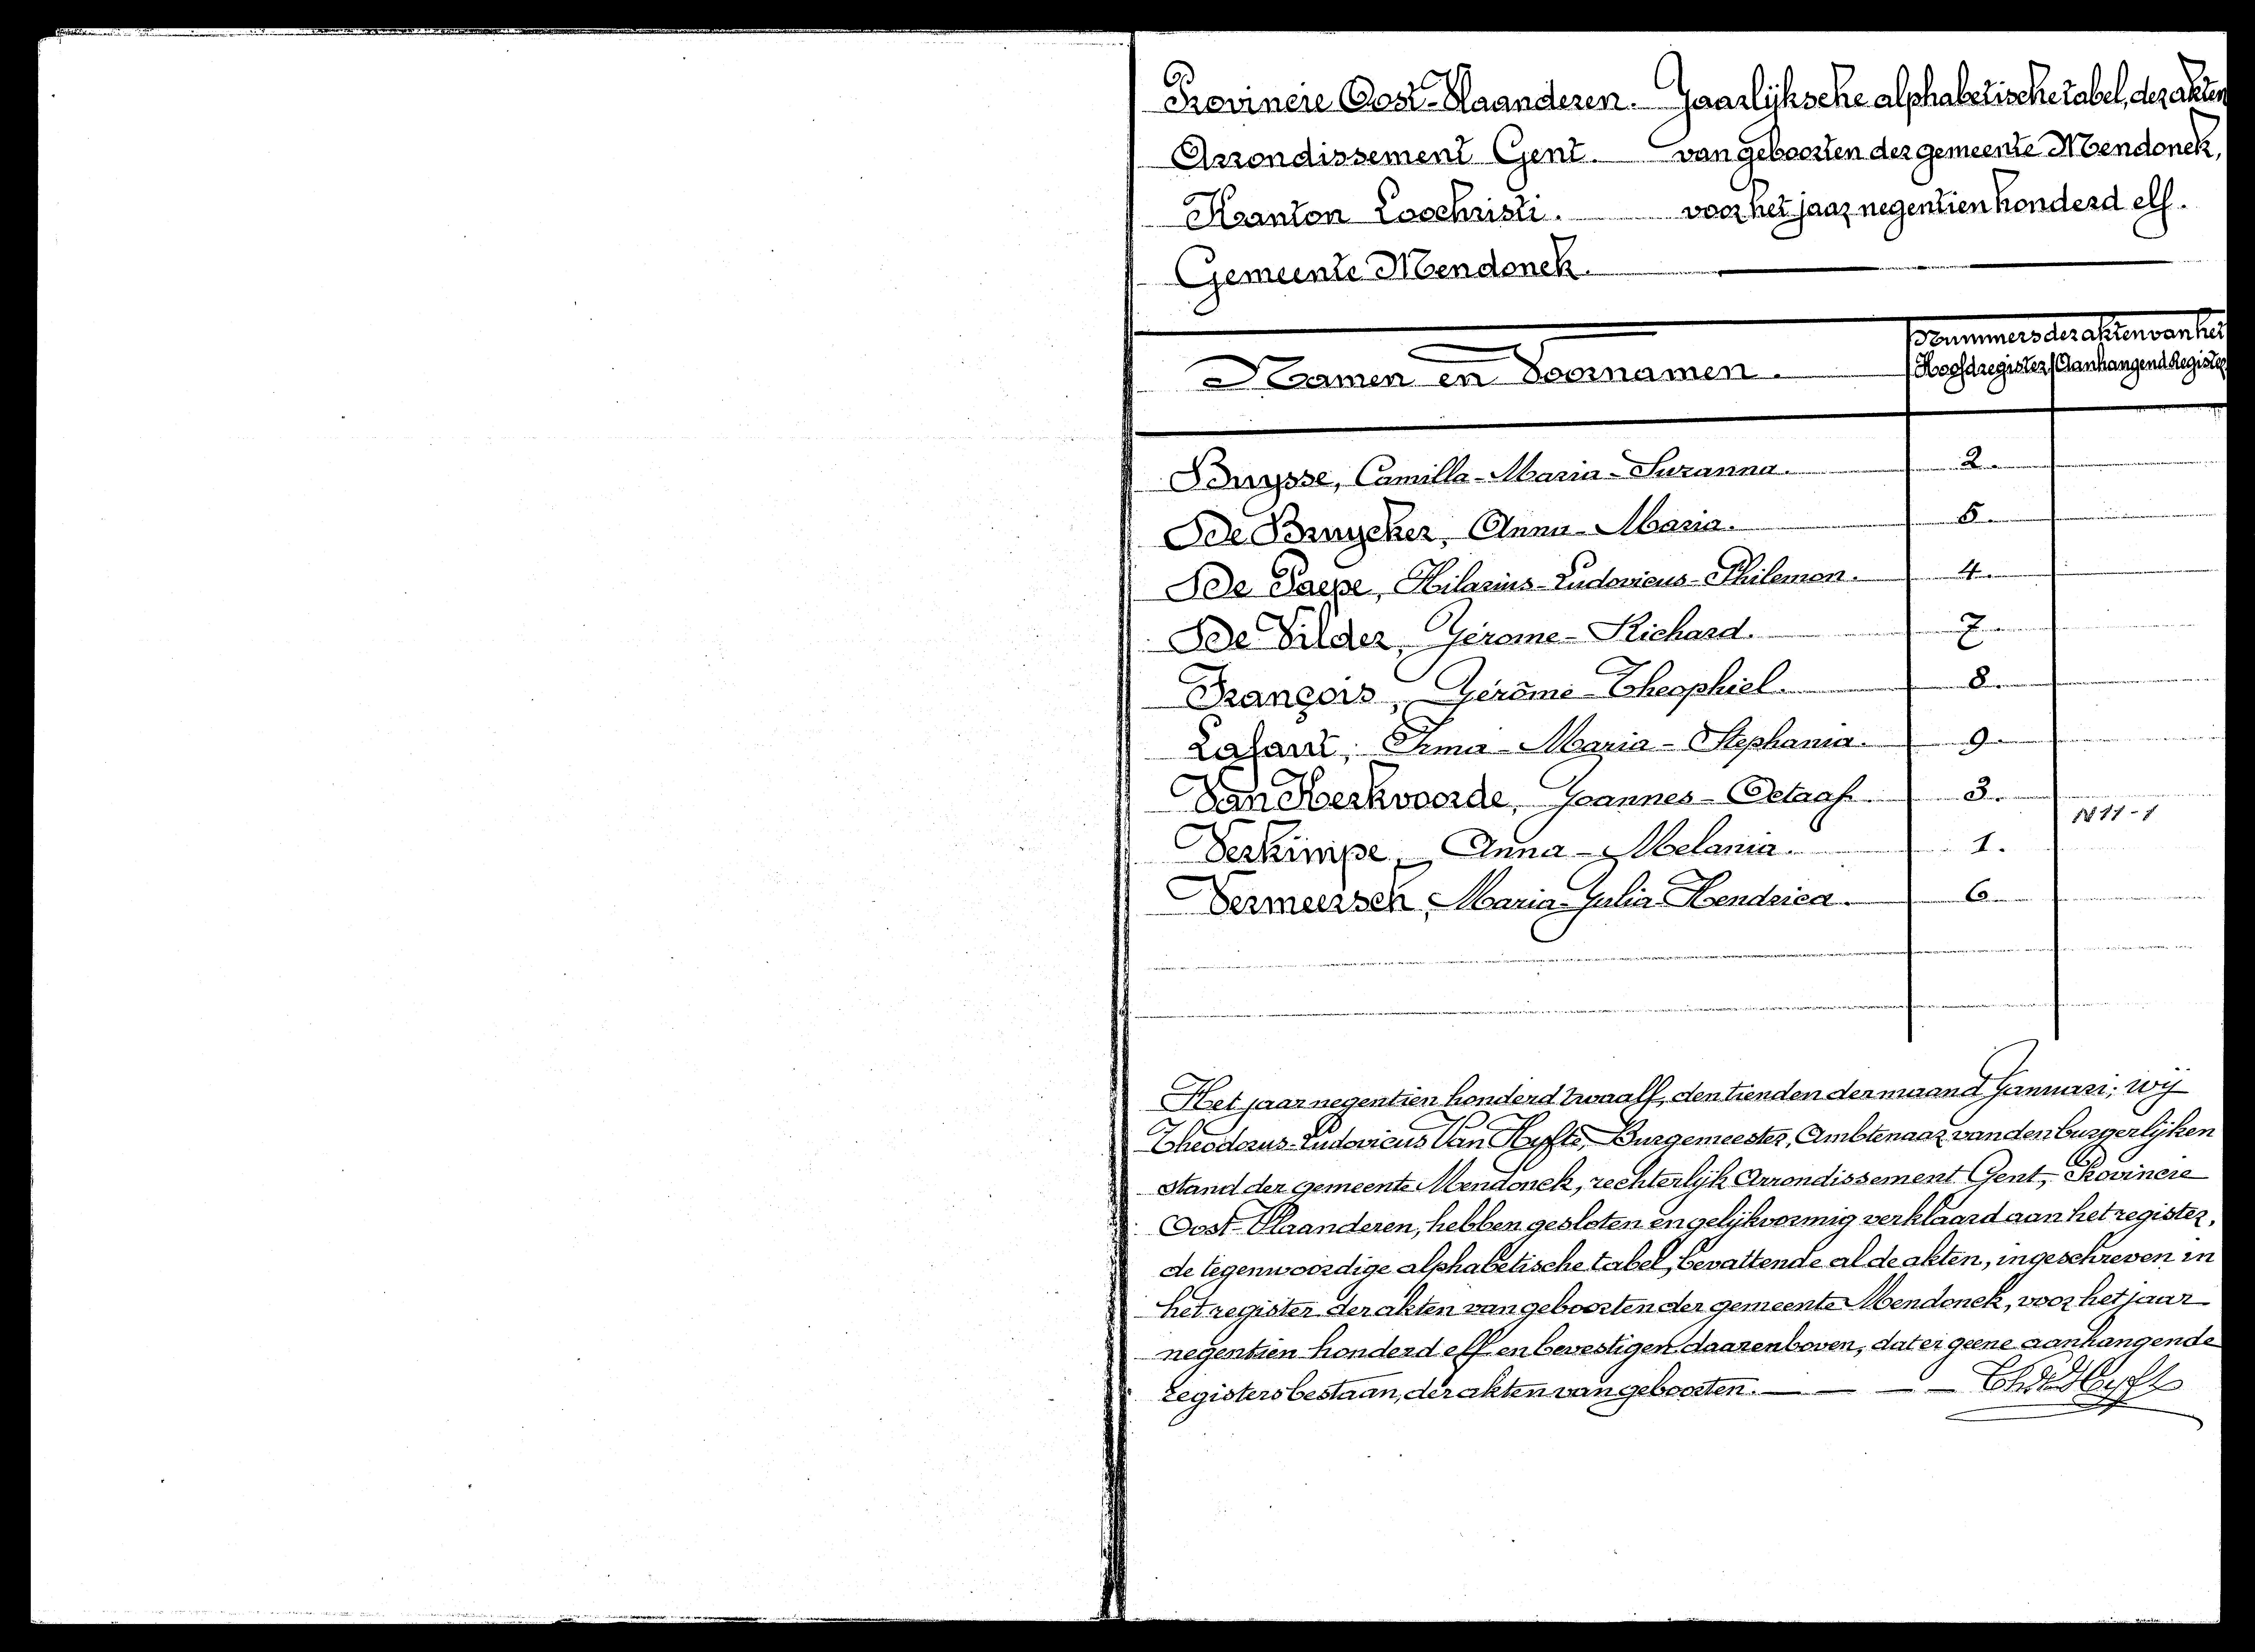 Provincie Oost-Vlaanderen. Jaarlijksche alphabetische tabel, der akten
Arrondissement Gent. van geboorten der gemeente Mendonck,
Kanton Loochristi. voor het jaar negentien honderd elf.
Gemeente Mendonck.
Nummers der akten van het
Namen en Voornamen. Hoofdregister Aanhangend Register
Buysse, Camilla-Maria-Suzanna. 2.
De Bruycker, Anna-Maria. 5.
De Paepe, Hilarius-Ludovicus-Philemon. 4.
De Vilder, Gérome-Richard. 7.
François, Gérôme-Theophiel. 8.
Lafaut, Irma-Maria-Stephania. 9.
Van Kerkvoorde, Joannes-Octaaf. 3.
1911-1
Verkimpe, Anna-Melania. 1.
Vermeersch, Maria-Julia-Hendrica. 6.
Het jaar negentien honderd twaalf, den tienden der maand Januari; wij
Theodorus-Ludovicus Van Hyfte, Burgemeester, Ambtenaar van den burgerlijken
stand der gemeente Mendonck, rechterlijk Arrondissement Gent, Provincie
Oost-Vlaanderen, hebben gesloten en gelijkvormig verklaard aan het register,
de tegenwoordige alphabetische tabel, bevattende al de akten, ingeschreven in
het register der akten van geboorten der gemeente Mendonck, voor het jaar
negentien honderd elf en bevestigen daarenboven, dat er geene aanhangende
registers bestaan, der akten van geboorten.